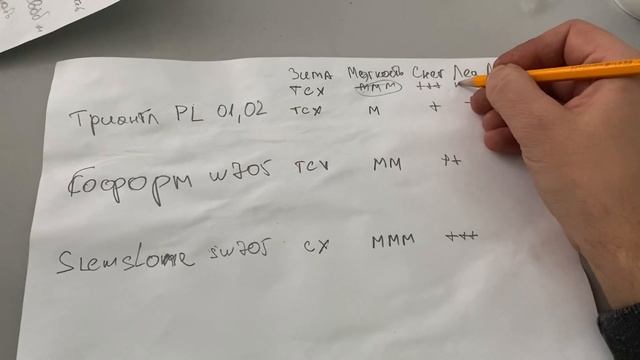 Зима Мягкость Снег Лед
ТСХ МММ +++
Триангл PL 01,02 ТСХ М +
Гоформ W705 ТСХ ММ ++
Slemstone SW705 СХ МММ +++